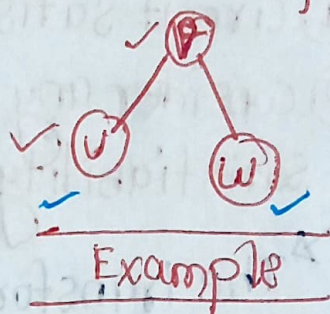 U
W
Example